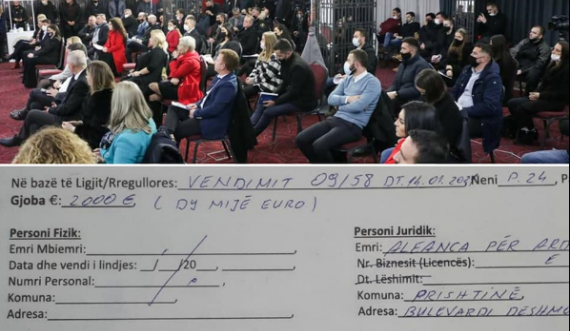 Në bazë të Ligjit/Rregullores: VENDIMIT 09/58 DT. 14.01.2021 Neni P. 24, P
Gjoba €: 2000 € ( DY MIJË EURO )
Personi Fizik:
Emri Mbiemri:
Data dhe vendi i lindjes: / /20 ,
Numri Personal:
Komuna:
Adresa:
Personi Juridik:
Emri: ALEANCA PËR ARD
Nr. Biznesit (Licencës): E
Dt. Lëshimit:
Komuna: PRISHTINË
Adresa: BULEVARDI DËSHMO